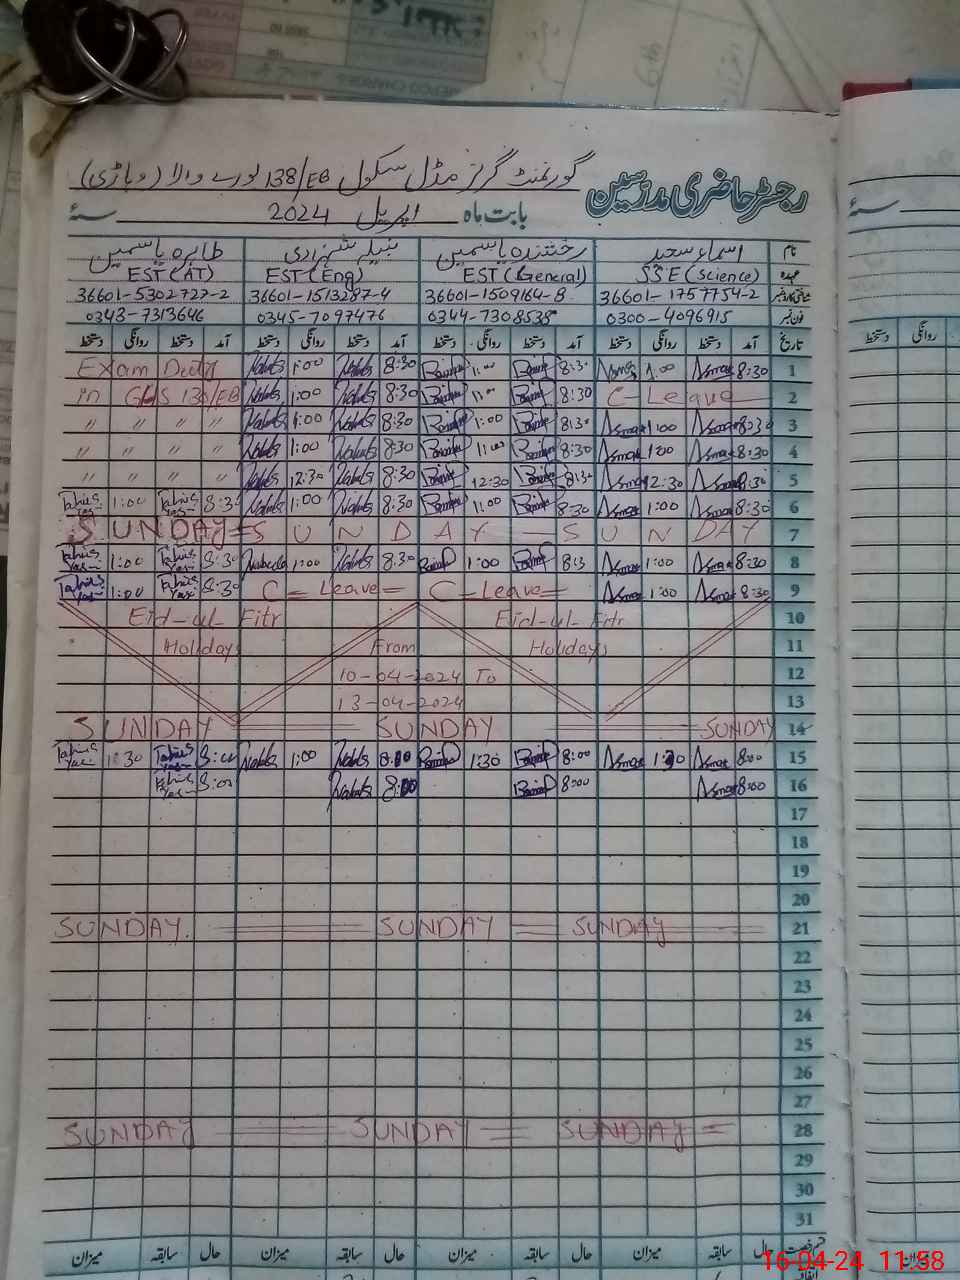 رجسٹر حاضری مدرسین گورنمنٹ گرلز مڈل سکول 138/EB بورے والا (وہاڑی)
بابت ماہ اپریل 2024 سنۂ
نام اسماء سعید رخشندہ یاسمین نبیلہ شہزادی طاہرہ یاسمین
عہدہ SSE (Science) EST (General) EST (Eng) EST (AT)
شناختی کارڈ نمبر 36601-1757754-2 36601-1509164-8 36601-1513287-4 36601-5302727-2
فون نمبر 0300-4096915 0344-7308538 0345-7097476 0343-7313646
تاریخ آمد دستخط روانگی دستخط آمد دستخط روانگی دستخط آمد دستخط روانگی دستخط آمد دستخط روانگی دستخط
1 8:30 Asma 1:00 Asma 8:30 1:00 8:30 1:00 Exam Duty
2 C-Leave 8:30 1:00 8:30 1:00 in GHS 130/EB
3 8:30 Asma 1:00 Asma 8:30 1:00 8:30 1:00 " " " "
4 8:30 Asma 1:00 Asma 8:30 1:00 8:30 1:00 " " " "
5 8:30 Asma 12:30 Asma 8:30 12:30 8:30 12:30 " " " "
6 8:30 Asma 1:00 Asma 8:30 1:00 8:30 1:00 8:30 1:00
7 SUNDAY = SUNDAY — SUNDAY
8 8:30 Asma 1:00 Asma 8:3 1:00 8:30 1:00 8:30 1:00
9 8:30 Asma 1:00 Asma C-Leave= C= Leave= 8:30 1:00
10 Eid-ul-Fitr Eid-ul-Fitr
11 Holidays From Holidays
12 10-04-2024 To
13 13-04-2024
14 SUNDAY SUNDAY SUNDAY
15 8:00 Asma 1:30 Asma 8:00 1:30 8:00 1:00 8:00 1:30
16 8:00 Asma 8:00 8:00 8:00
17
18
19
20
21 SUNDAY SUNDAY SUNDAY
22
23
24
25
26
27
28 SUNDAY SUNDAY SUNDAY
29
30
31
حال سابقہ میزان حال سابقہ میزان حال سابقہ میزان حال سابقہ میزان
16-04-24 11:58